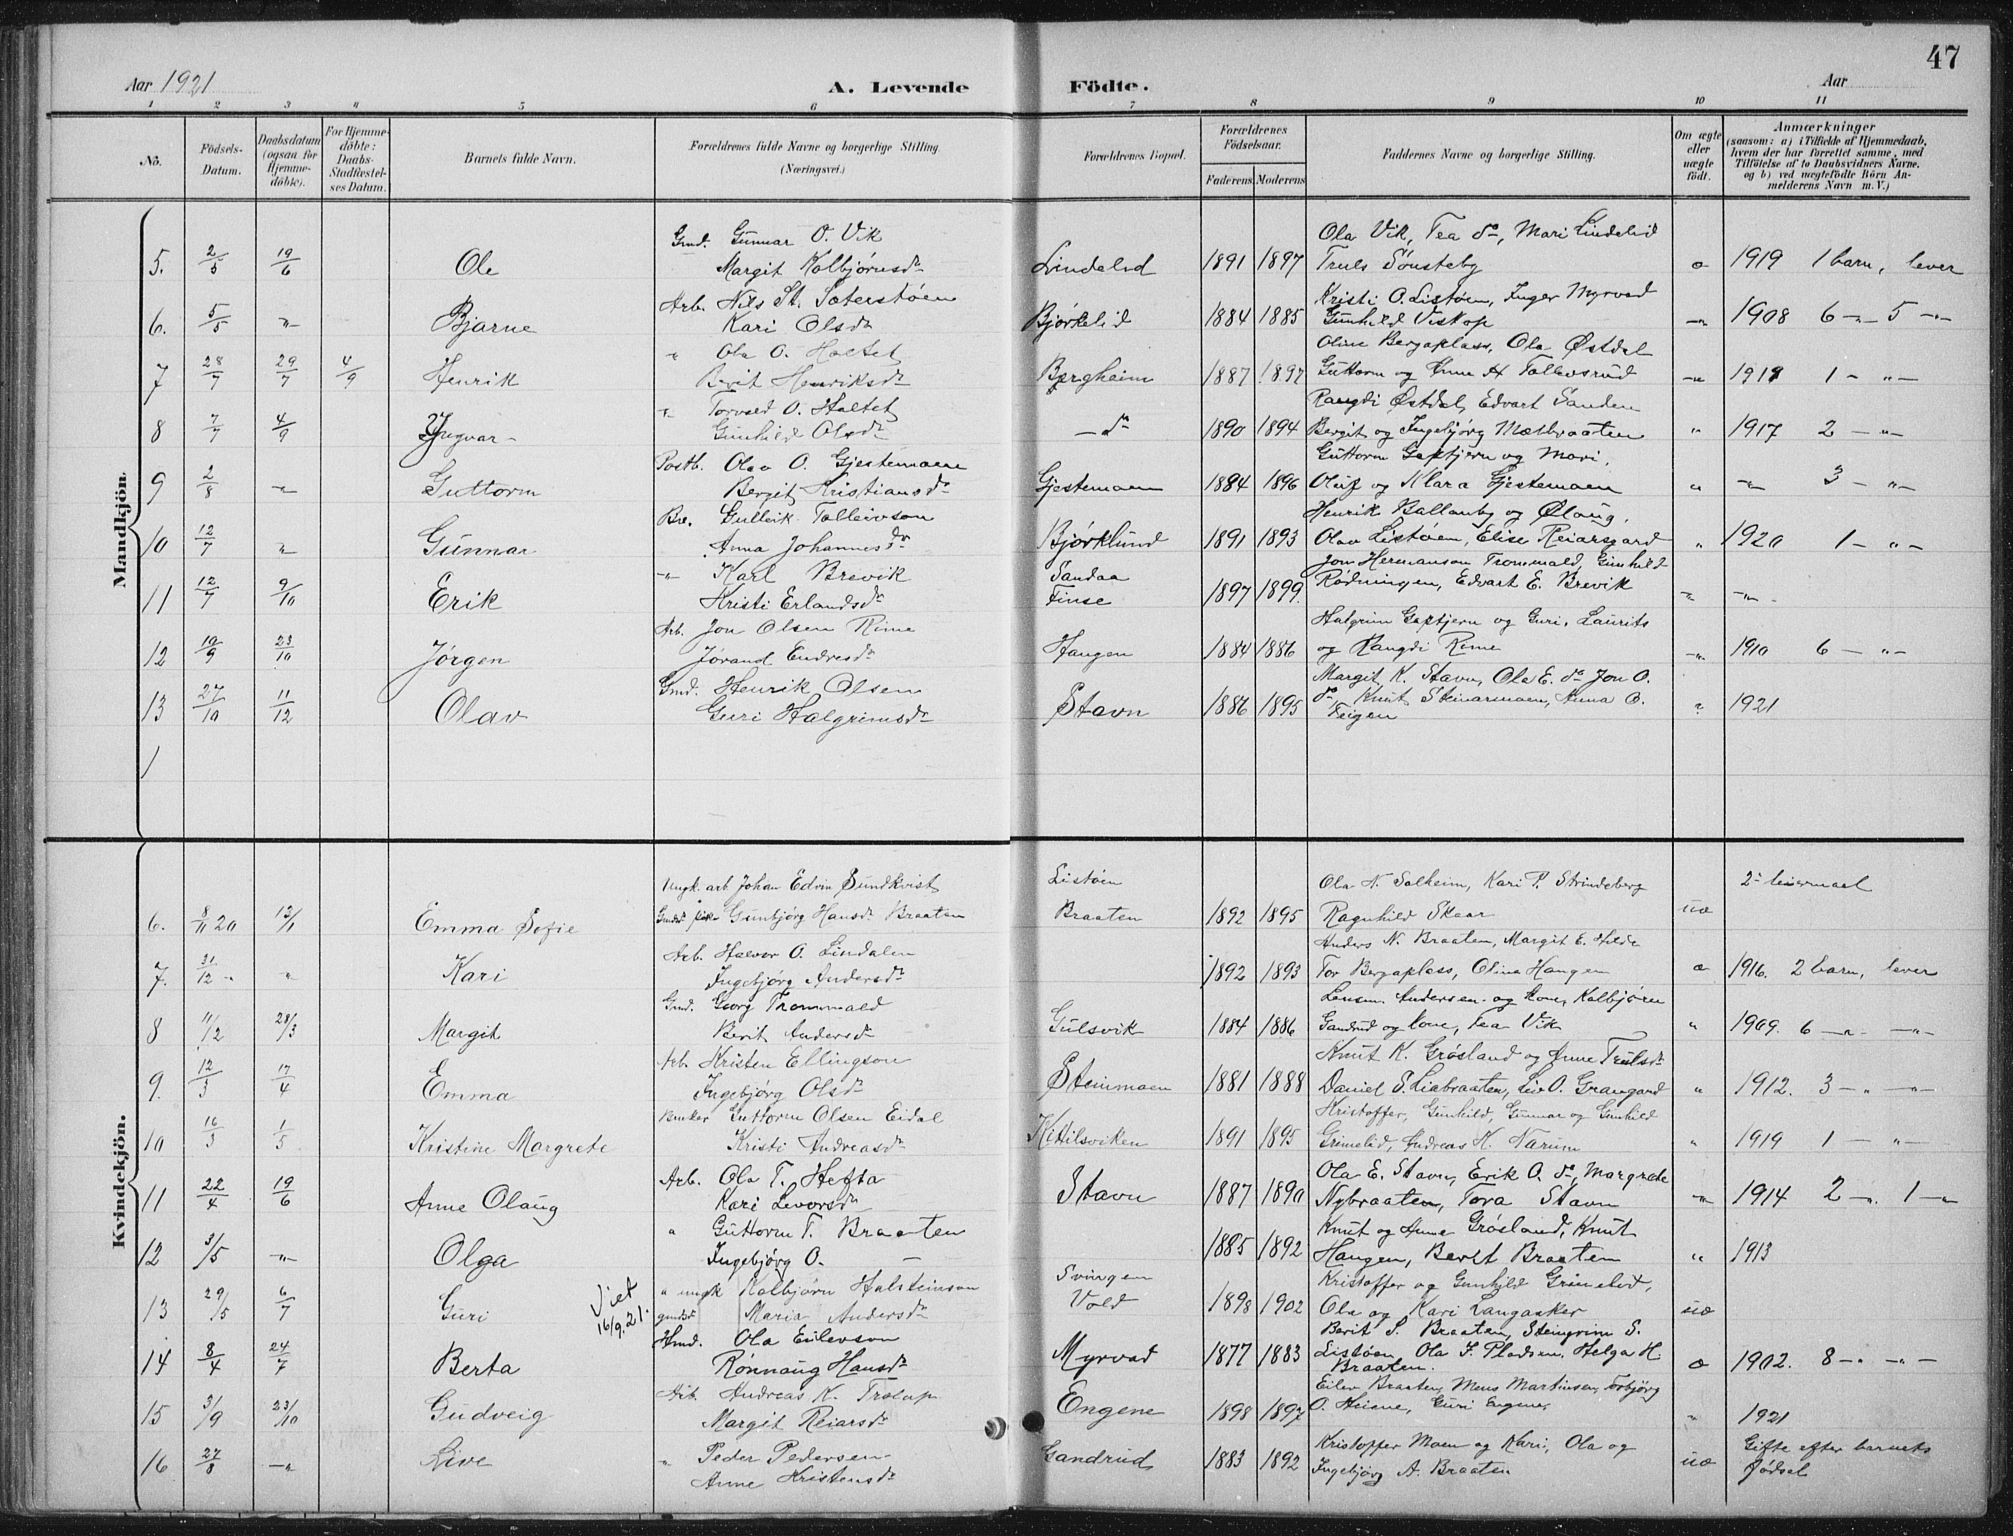 47
Aar 1921
A. Levende Födte.
Aar
1 2 3 4 5 6 7 8 9 10 11
Nö.
Födsels-Datum.
Daabsdatum (ogsaa for Hjemmedöbte).
For Hjemmedöbte: Daabs-Stadfæstelses Datum.
Barnets fulde Navn.
Forældrenes fulde Navne og borgerlige Stilling. (Næringsvei.)
Forældrenes Bopæl.
Forældrenes Födselsaar.
Faderens. Moderens.
Faddernes Navne og borgerlige Stilling.
Om ægte eller uægte födt.
Anmærkninger (saasom: a) i Tilfælde af Hjemmedaab, hvem der har forrettet samme, med Tilföielse af to Daabsvidners Navne, og b) ved uægtefödte Börn Anmelderens Navn m. V.)
Mandkjön.
5. 2/5 19/6 Ole Gmd. Gunnar O. Vik
Margit Kolbjørnsdr Lindelid 1891 1897 Ola Vik, Tea do, Mari Lindelid
Truls Sønsteby o 1919 1 barn, lever
6. 5/5 -"- Bjarne Arb. Nils St. Sæterstøen
Kari Olsdr Bjørkelid 1884 1885 Kristi O. Listøen, Inger Myrvad
Gunhild Viskop -"- 1908 6 -"- 5 -"-
7 28/7 29/7 4/9 Henrik " Ola O. Haltet
Berit Henriksdr Bergheim 1887 1897 Oline Bergaplass, Ola Østdal
Guttorm og Anne H Tollevsrud -"- 1918 1 - "-
8 7/7 4/9 Yngvar " Torvald O. Haltet
Gunhild Olsdr - do 1890 1894 Rangdi Østdal, Edvart Sanden
Bergit og Ingebjørg Mælbraaten " 1917 2 - "-
9 2/8 -"- Guttorm Postb. Olav O. Gjestemoen
Bergit Kristiansdr Gjestemoen 1884 1896 Guttorm Gaptjern og Mari,
Oluf og Klara Gjestemoen " -"- 3 - "-
10 12/7 " Gunnar Bre. Gulleik Tolleivson
Anna Johannesdr Bjørklund 1891 1893 Henrik Ballanby og Ølaug,
Olav Listøen, Elise Reiarsgard " 1920 1 - "-
11 12/7 9/10 Erik -"- Karl Brevik
Kristi Erlandsdr Sandaa
Finse 1897 1899 Jon Hermanson Trommald, Gunhild
Rødningen, Edvart E. Brevik -"- -"-
12 19/9 23/10 Jørgen Arb. Jon Olsen Rime
Jørand Endresdr Haugen 1884 1886 Halgrim Gaptjern og Guri, Laurits
og Rangdi Rime -"- 1910 6 - "-
13 27/10 11/12 Olav Gmd. Henrik Olsen
Guri Halgrimsdr Stavn 1886 1895 Margit K. Stavn, Ola E. do Jon O.
do Knut Steinarmoen, Anna O.
Feigen " 1921
1
Kvindekjön.
6. 8/11 20 13/1 Emma Sofie Ungk. arb Johan Edvin Sundkvist
Gmdsdr pike Gunbjørg Hansdr Braaten Listøen
Braaten 1892 1895 Ola N. Solheim, Kari P. Strindeberg
Ragnhild Skaar uæ 2. leiermaal
7. 31/12 - " Kari Arb. Halvor O. Lindalen
Ingebjørg Andersdr 1892 1893 Anders N. Braaten, Margit E. Hilde
Tor Bergaplass, Olina Haugen æ 1916. 2 barn, lever
8 11/2 28/3 Margit Gmd. Georg Trommald
Berit Andersdr Gulsvik 1884 1886 Lensm. Andersen og kone, Kolbjøren
Gandrud og kone, Tea Vik " 1909. 6 -"- -"-
9. 12/3 17/4 Emma Arb. Kristen Ellingson
Ingebjørg Olsdr Steinmoen 1881 1888 Knut K. Grøsland og Anne Trulsdr
Daniel S. Liabraaten, Liv O. Grangard " 1912. 3 - " -"-
10 16/3 1/5 Kristine Margrete Guttorm Olsen Eidal
Kristi Andreasdr Kittilsviken 1891 1895 Kristoffer, Gunhild, Gunnar og Gunhild
Grimelid, Andreas K. Narum " 1919 1 - "-
11 22/4 19/6 Anne Olaug Arb. Ola T. Hefta
Kari Levorsdr Stavn 1887 1890 Ola E. Stavn, Erik O. do, Margrete
Nybraaten, Tora Stavn -"- 1914 2 -". 1 -"
12 3/5 -"- Olga " Guttorm T. Braaten
Ingebjørg O. — 1885 1892 Knut og Anne Grøsland, Knut
Haugen, Berit Braaten " 1913
13 29/5 6/7 Guri Viet
16/9.21. " ungk Kolbjørn Halsteinson
gmdsdr Maria Andersdr Svingen
Vold 1898 1902 Kristoffer og Gunhild Grimelid,
Ola og Kari Langaaker uæ
14 8/4 24/7 Berta Hmd. Ola Eilevson
Rønnaug Hansdr Myrvad 1877 1883 Berit S. Braaten, Steingrim S.
Listøen Ola J. Pladsen, Helga H.
Braaten. æ 1902. 8 -"- -"-
15 3/9 23/10 Gudveig Arb. Andreas K. Trolup
Margit Reiarsdr Engene 1898 1897 Eilev Braaten, Mons Martinsen, Torbjørg
O. Heiene, Guri Engene " 1921
16 27/8 -" Live " Peder Pedersen
Anne Kristensdr Gandrud 1883 1892 Kristoffer Moen og Kari, Ola og
Ingebjørg A. Braaten uæ Gifte efter barnets
fødsel